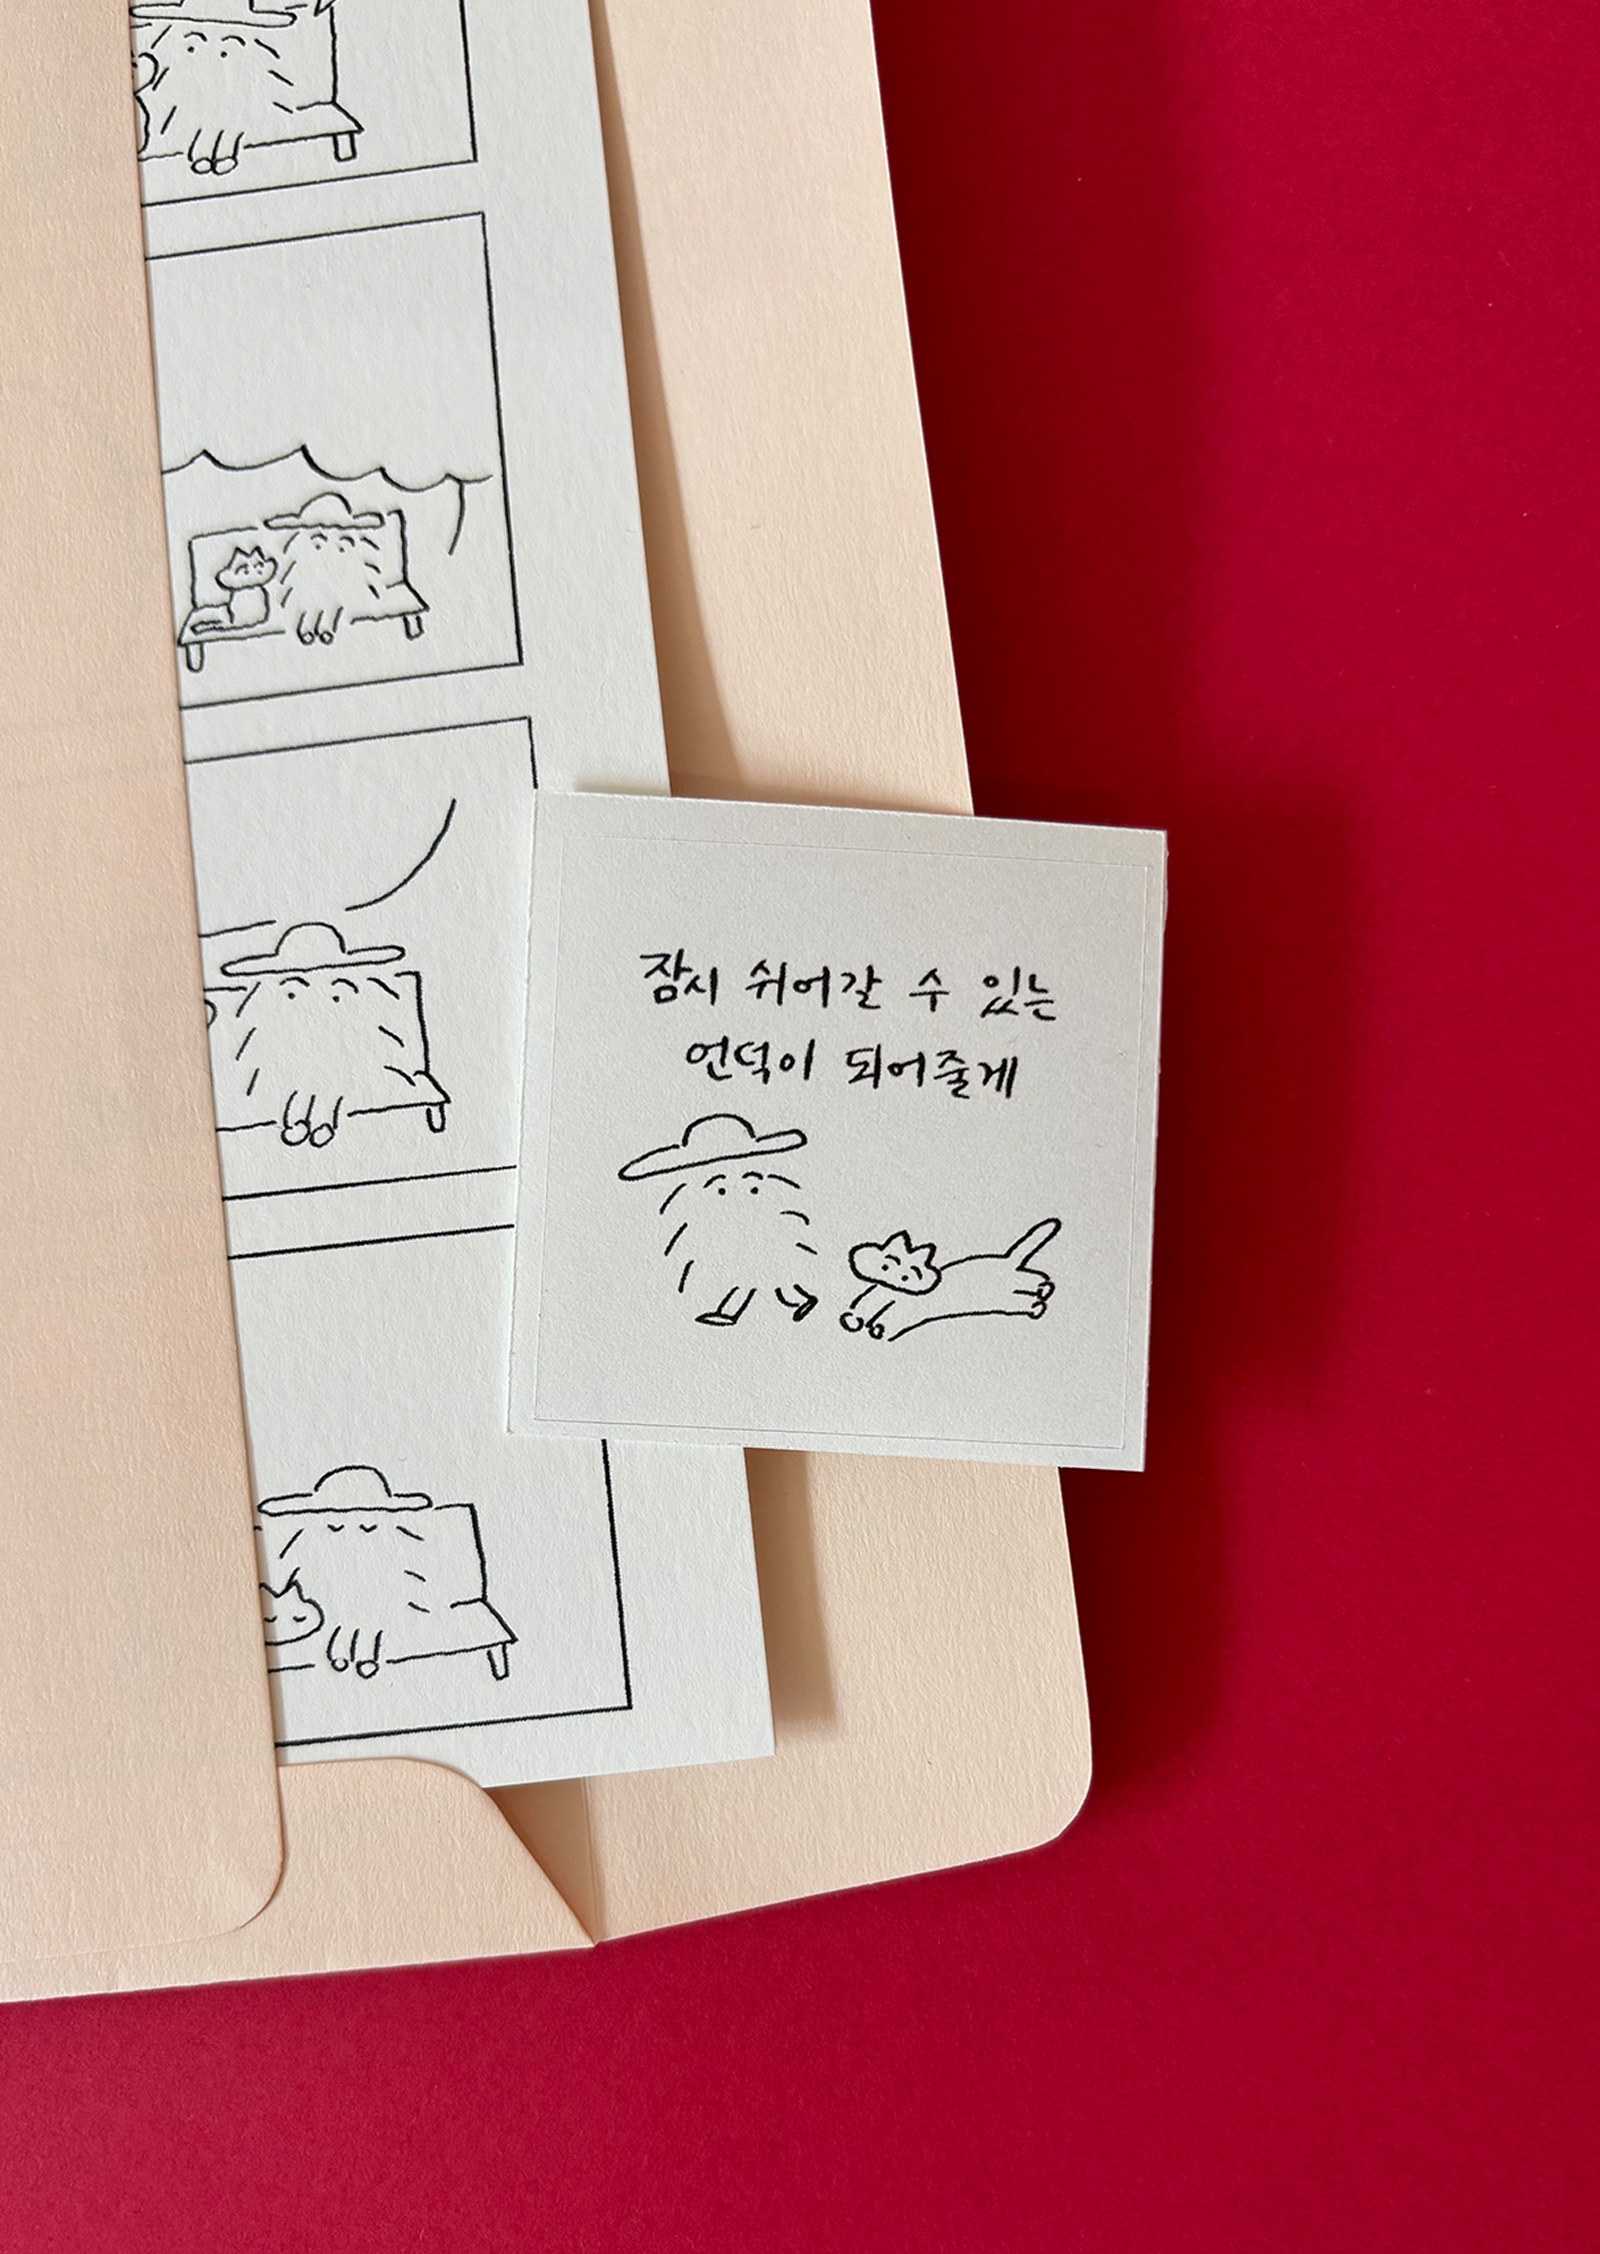 잠시 쉬어갈 수 있는
언덕이 되어줄게